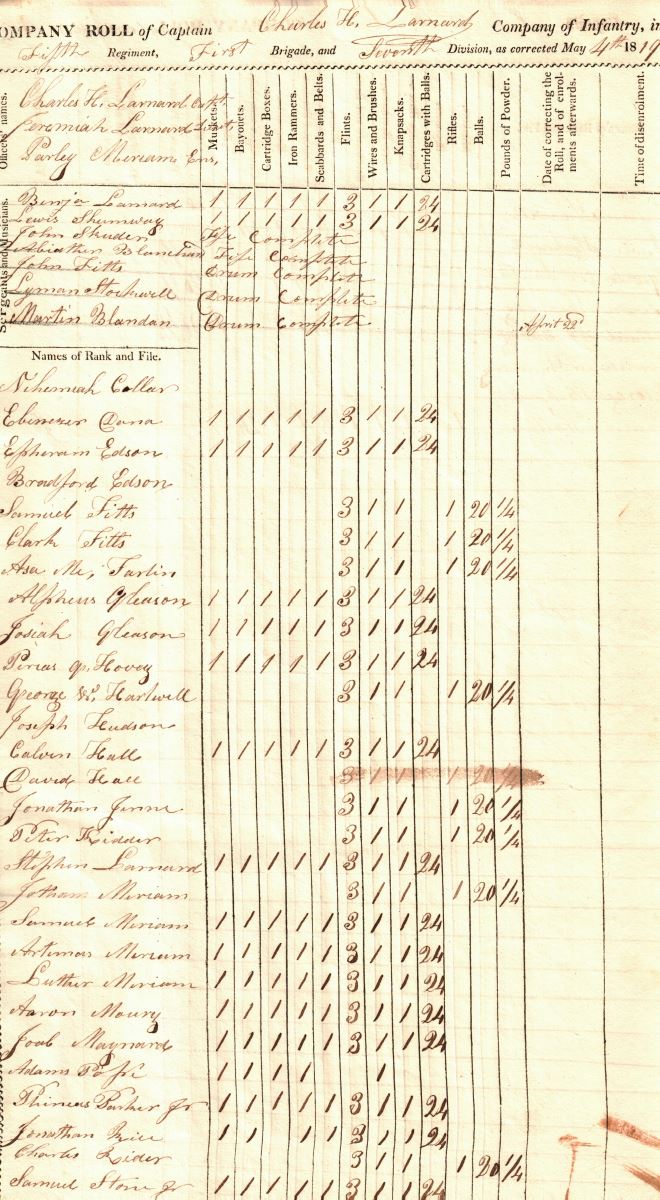 OMPANY ROLL of Captain Charles H. Larnard Company of Infantry, in
Fifth Regiment, First Brigade, and Seventh Division, as corrected May 4th 1819
Officers' names.
Charles H. Larnard Capt.
Jeremiah Larnard Lieut.
Parley Meriam Ens.
Muskets.
Bayonets.
Cartridge Boxes.
Iron Rammers.
Scabbards and Belts.
Flints.
Wires and Brushes.
Knapsacks.
Cartridges with Balls.
Rifles.
Balls.
Pounds of Powder.
Date of correcting the Roll, and of enrolments afterwards.
Time of disenrolment.
Sergeants and Musicians.
Benja Larnard 1 1 1 1 1 3 1 1 24
Lewis Shumway 1 1 1 1 1 3 1 1 24
John Fife Complete
Fife Complete
John Fitts Drum Complete
Lyman Stockwell Drum Complete
Martin Blandan Drum Complete April 22d
Names of Rank and File.
Nehemiah Collar
Ebenezer Dana 1 1 1 1 1 3 1 1 24
Epheram Edson 1 1 1 1 1 3 1 1 24
Bradford Edson
Samuel Fitts 3 1 1 1 20 1/4
Clark Fitts 3 1 1 1 20 1/4
Asa Mc, Farlin 3 1 1 1 20 1/4
Alpheus Gleason 1 1 1 1 1 3 1 1 24
Josiah Gleason 1 1 1 1 1 3 1 1 24
Hovey 1 1 1 1 1 3 1 1 24
George Hartwell 3 1 1 1 20 1/4
Joseph Hudson
Calvin Hall 1 1 1 1 1 3 1 1 24
David Hall 3 1 1 1 20 1/4
Jonathan Jenne 3 1 1 1 20 1/4
Peter Kidder 3 1 1 1 20 1/4
Stephen Larnard 1 1 1 1 1 3 1 1 24
Jotham Meriam 3 1 1 1 20 1/4
Samuel Meriam 1 1 1 1 1 3 1 1 24
Artemas Meriam 1 1 1 1 1 3 1 1 24
Luther Meriam 1 1 1 1 1 3 1 1 24
Aaron Moury 1 1 1 1 1 3 1 1 24
Joab Maynard 1 1 1 1 1 3 1 1 24
Adams Pope 1 1 1 1 1
Phineas Parker Jr 1 1 1 1 1 3 1 1 24
Jonathan Rice 1 1 1 1 3 1 1 24
Charles Rider 3 1 1 1 20 1/4
Samuel Stone Jr 1 1 1 1 1 3 1 1 24